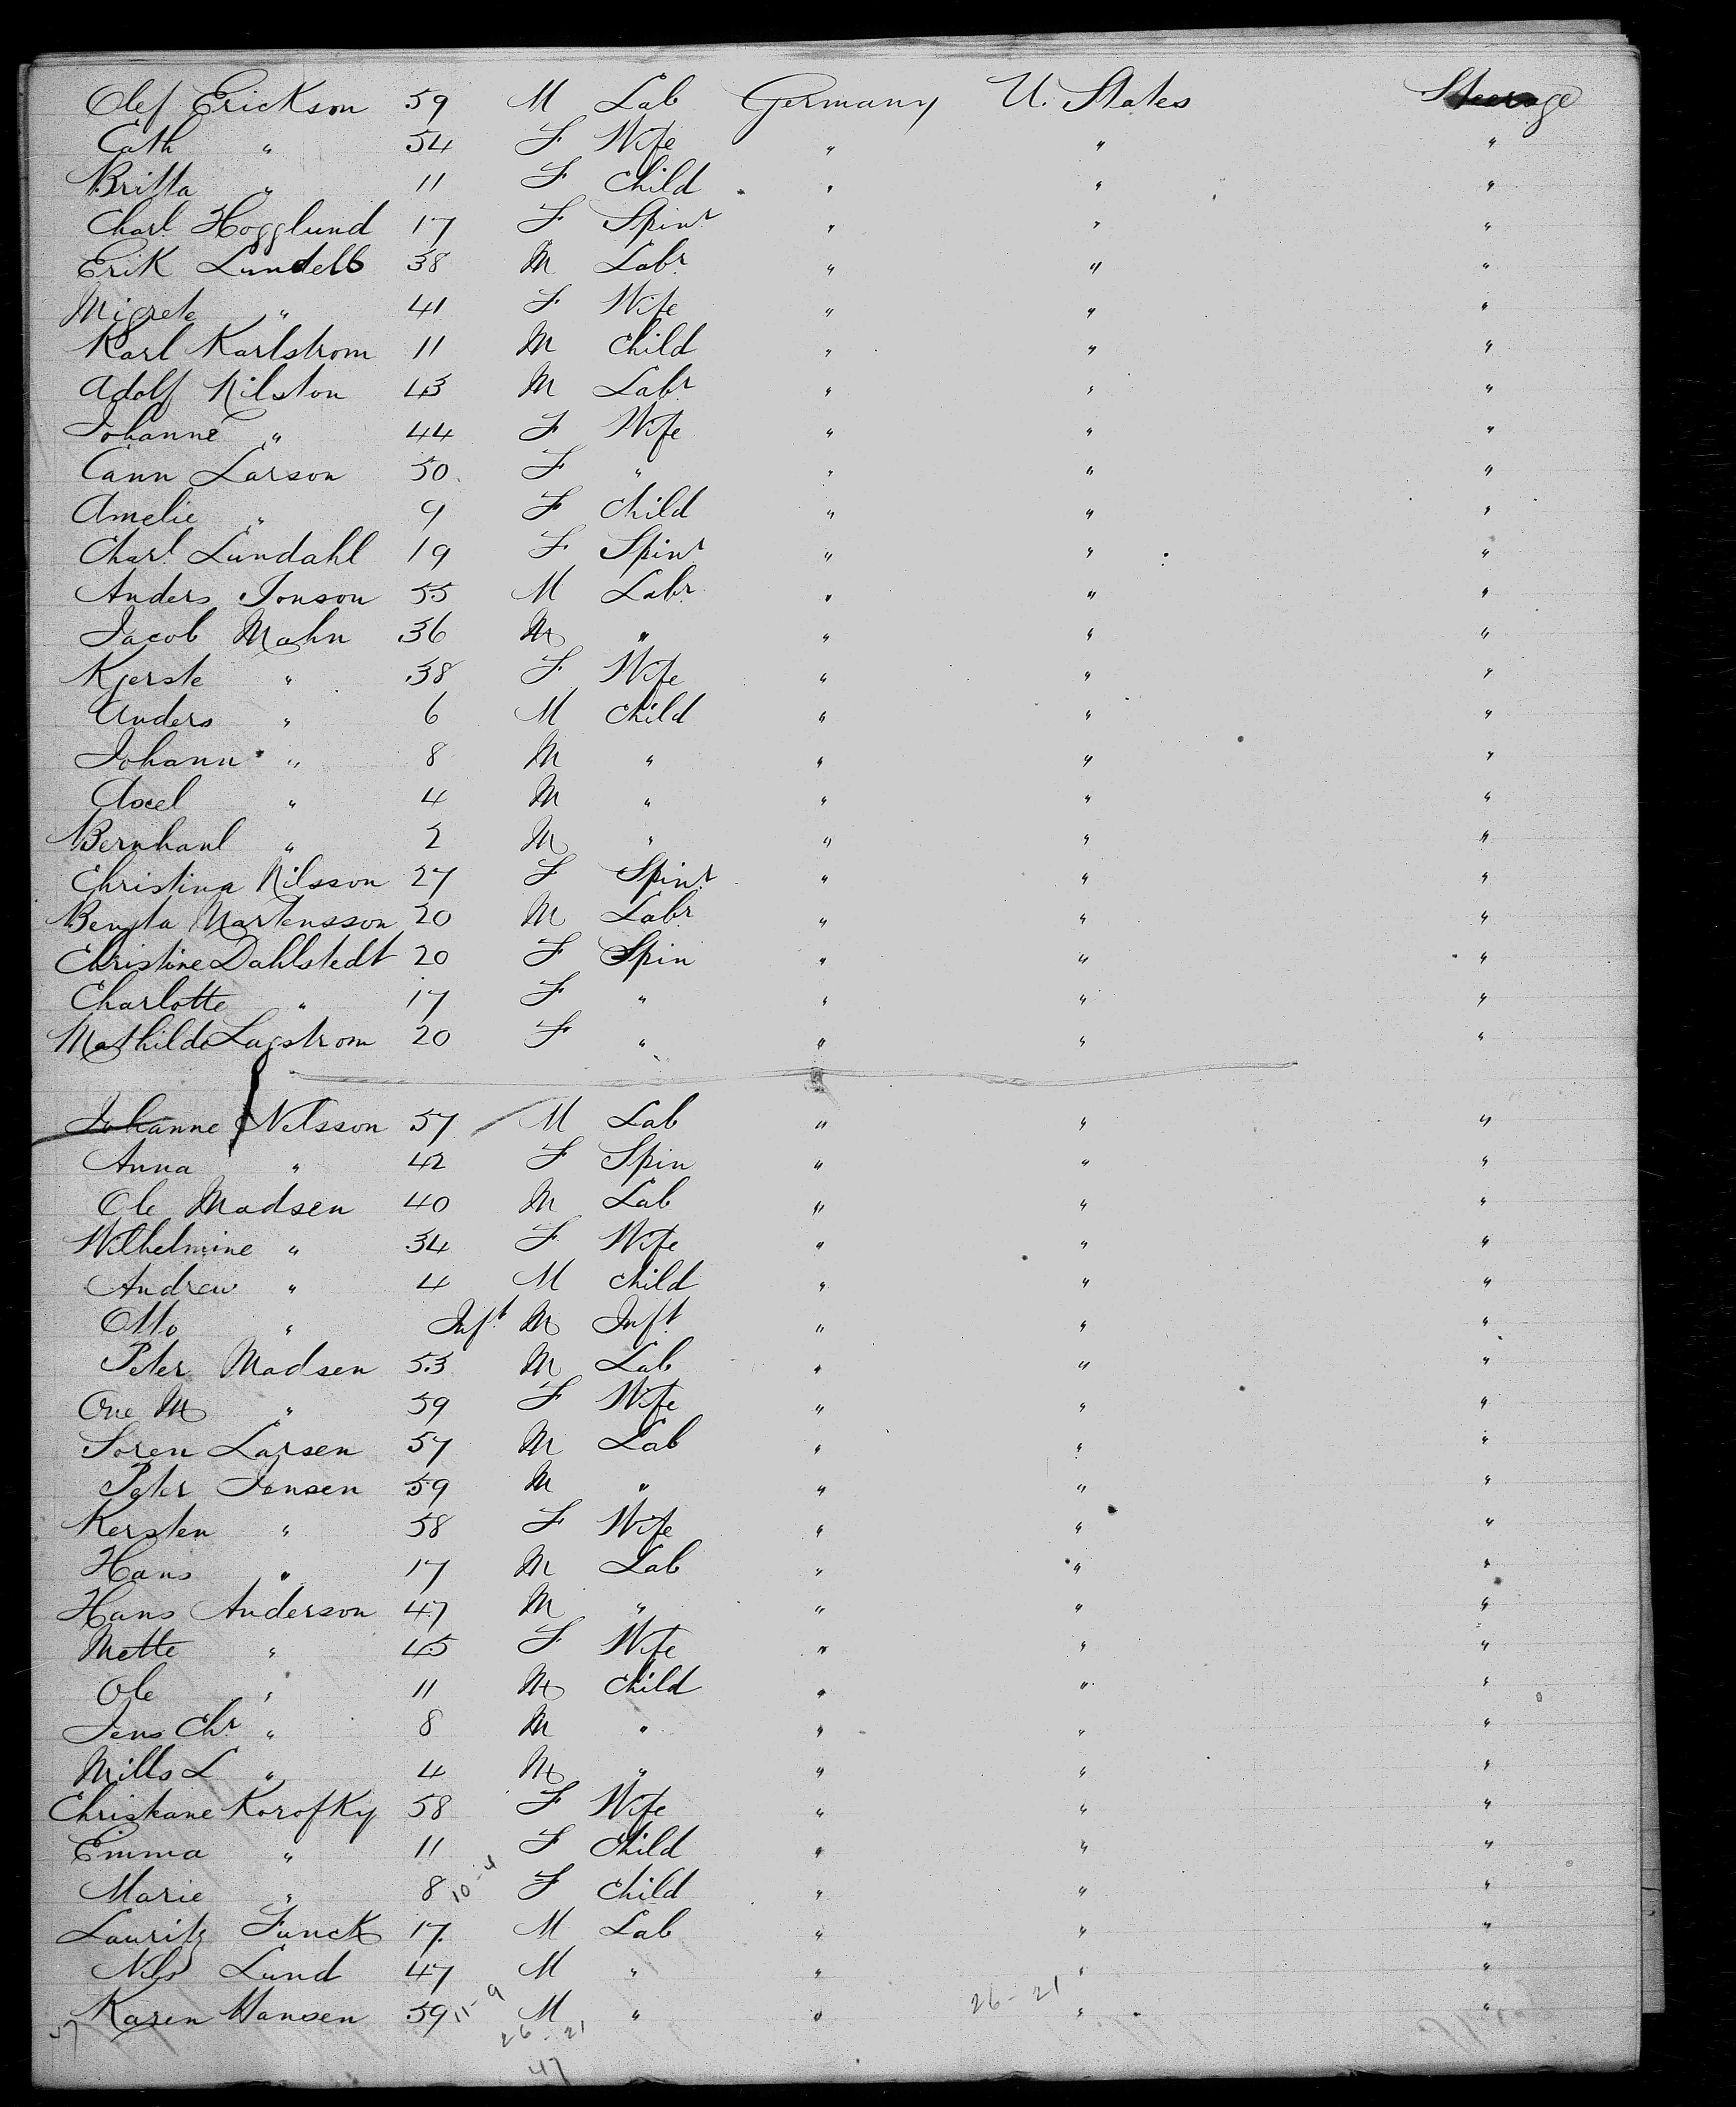 Olef Erickson 59 M Lab Germany U. States Steerage
Cath " 54 F Wife " " "
Britta " 11 F Child " " "
Charl. Hogglund 17 F Spinr " " "
Erik Lundell 38 M Labr " " "
Migrete " 41 F Wife " " "
Karl Karlstrom 11 M Child " " "
Adolf Nilston 43 M Labr " " "
Johanne " 44 F Wife " " "
Cann Larson 50 F " " " "
Amelie " 9 F Child " " "
Charl. Lundahl 19 F Spinr " " "
Anders Jonson 55 M Labr " " "
Jacob Mahn 36 M " " " "
Kjerste " 38 F Wife " " "
Anders " 6 M Child " " "
Johann " 8 M " " " "
Axel " 4 M " " " "
Bernhard " 2 M " " " "
Christina Nilsson 27 F Spinr " " "
Bengta Martensson 20 M Labr " " "
Christine Dahlstedt 20 F Spin " " "
Charlotte " 17 F " " " "
Mathilde Lagstrom 20 F " " " "
Johanne Nelsson 57 M Lab " " "
Anna " 42 F Spin " " "
Ole Madsen 40 M Lab " " "
Wilhelmine " 34 F Wife " " "
Andrew " 4 M Child " " "
Otto " Inft M Inft " " "
Peter Madsen 53 M Lab " " "
Ane M " 59 F Wife " " "
Soren Larsen 57 M Lab " " "
Peter Jensen 59 M " " " "
Kersten " 58 F Wife " " "
Hans " 17 M Lab " " "
Hans Anderson 47 M " " " "
Mette " 45 F Wife " " "
Ole " 11 M Child " " "
Jens Chr " 8 M " " " "
Mills L " 4 M " " " "
Christiane Korofky 58 F Wife " " "
Emma " 11 F Child " " "
Marie " 8 10-4 F Child " " "
Lauritz Funck 17 M Lab " " "
Nils Lund 47 M " " " "
Karen Hansen 59 11-9 M " " 26-21 " "
47 26-21
47